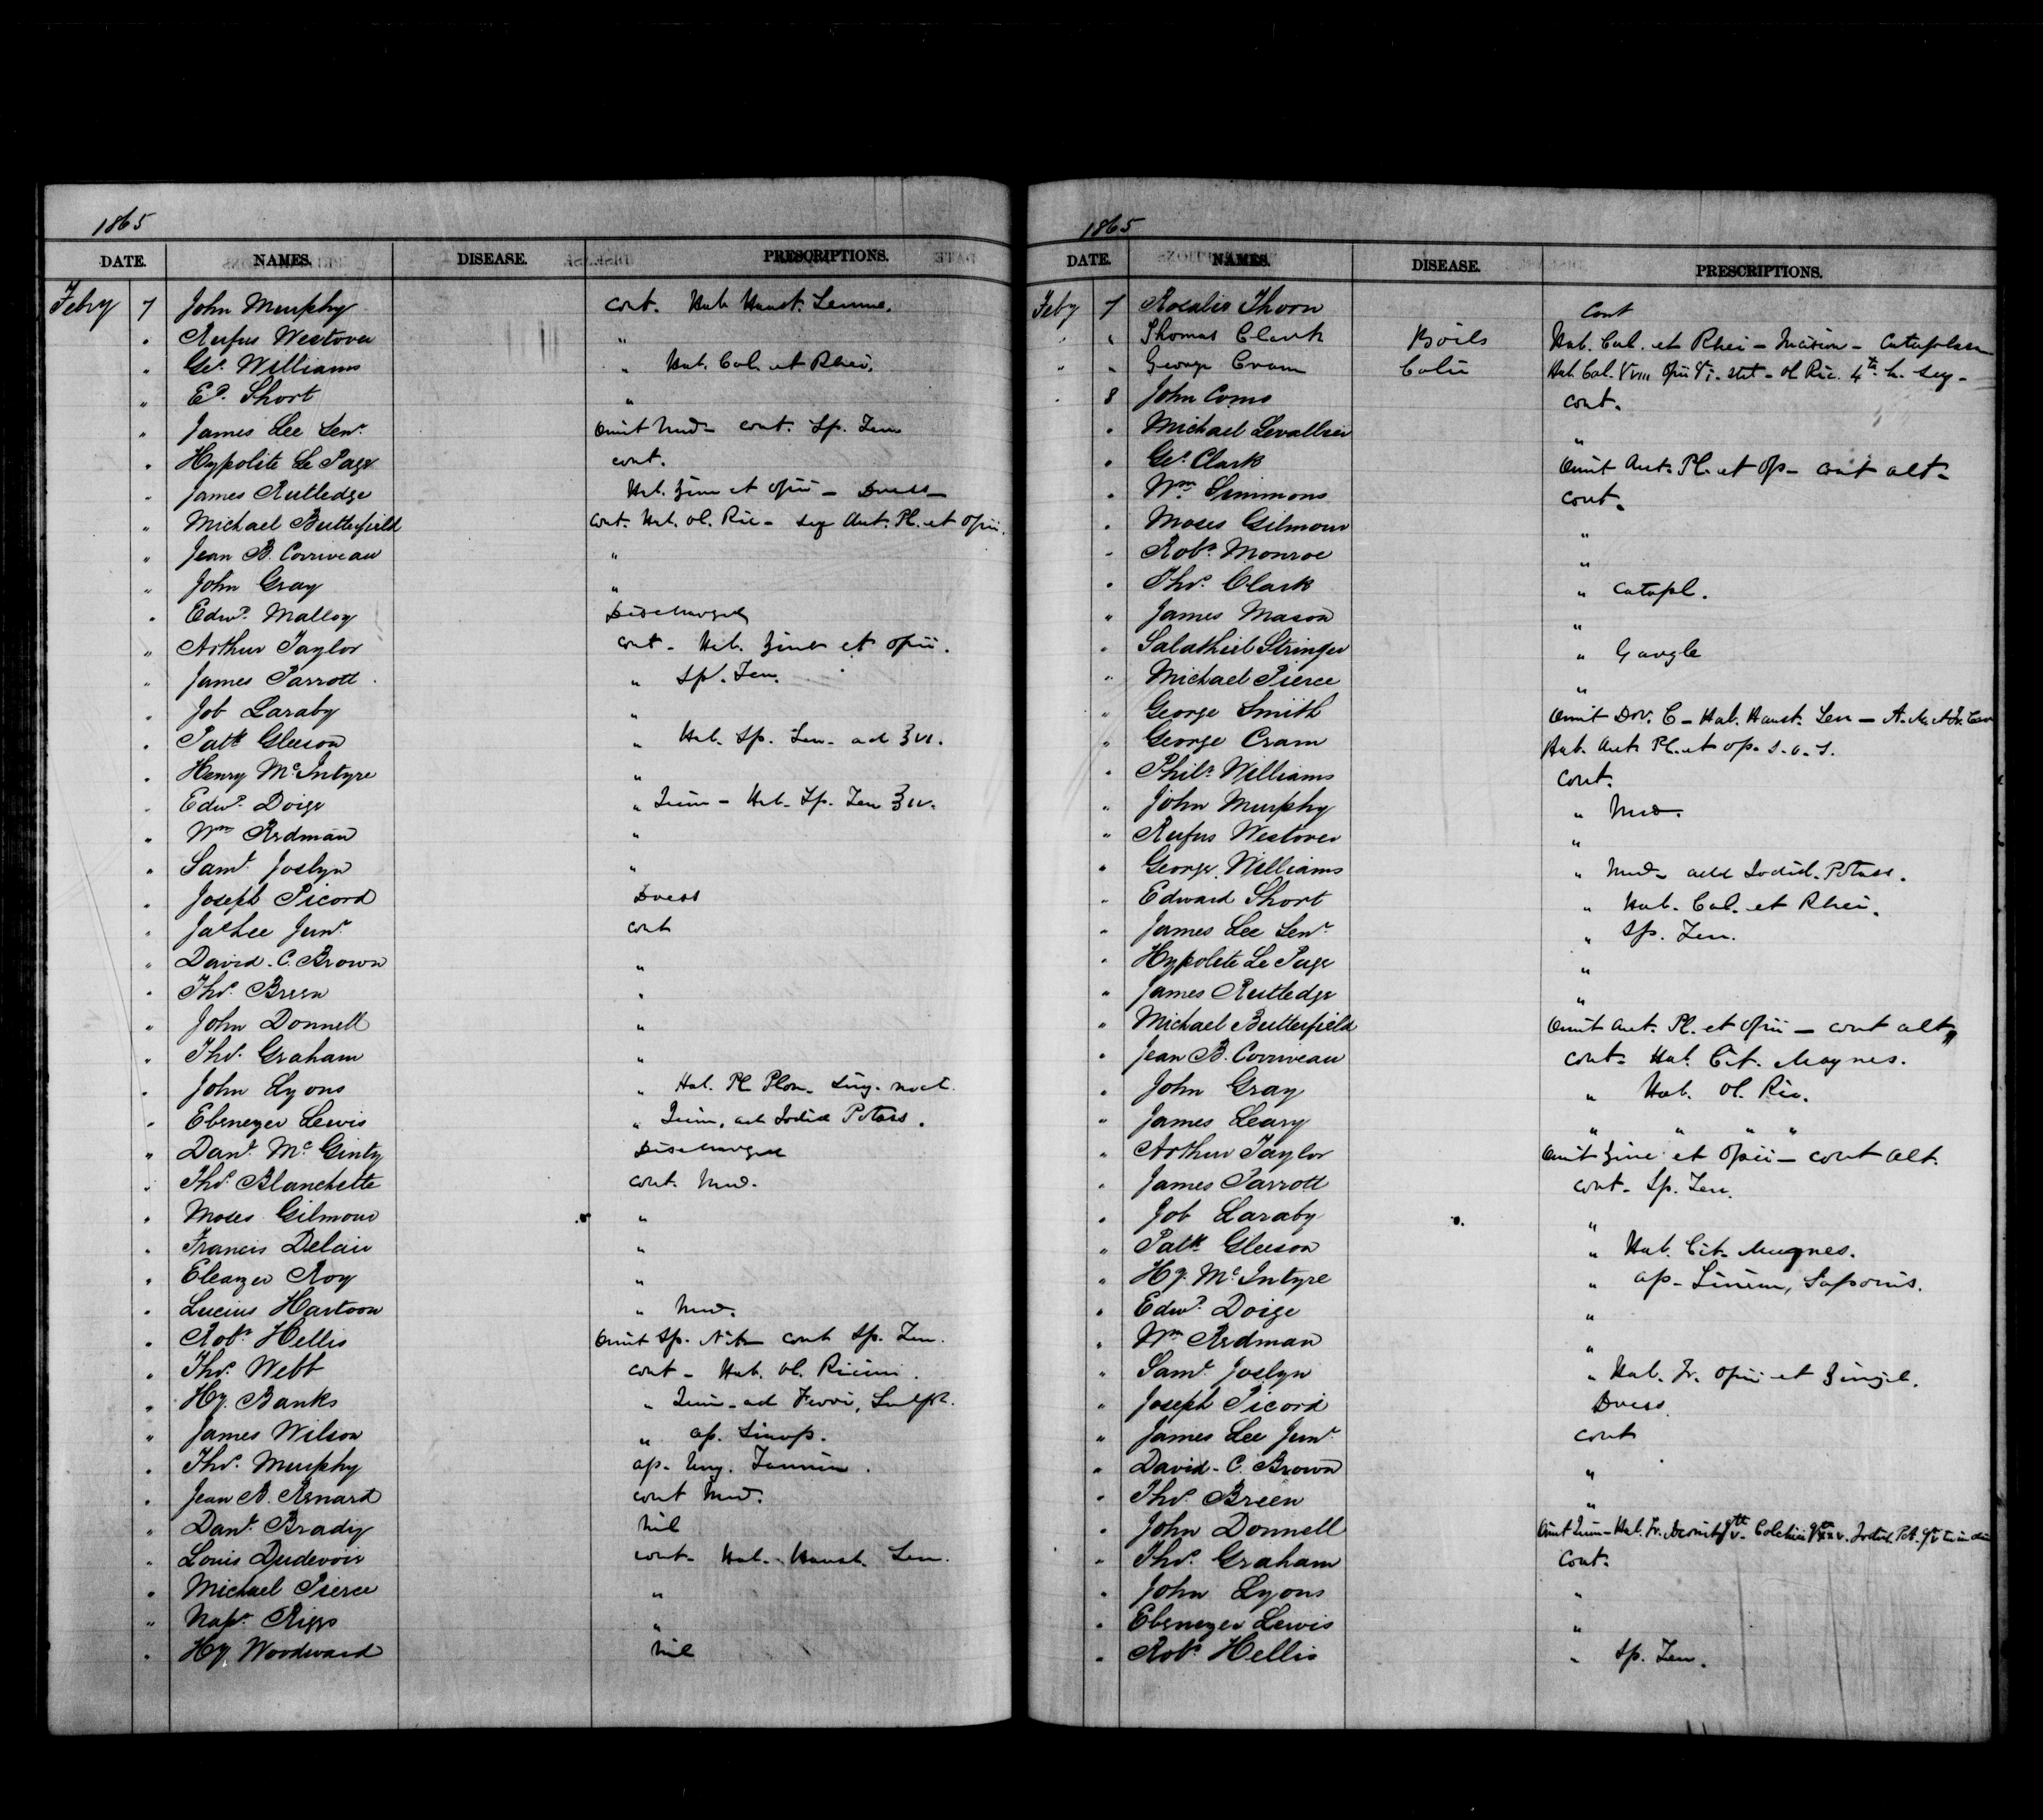 1865
DATE. NAMES. DISEASE. PRESCRIPTIONS.
Febry 7 John Murphy cont. Hab. Haust. Sennae.
" Rufus Westover "
" Geo. Williams " Hab. Cal. et Rhei.
" Ed. Short "
" James Lee Senr. Omit Med - cont. Sp. Ten
" Hypolite Le Page cont.
" James Rutledge Hab. Zinc et Opii - Dress -
" Michael Butterfield Cont. Hab. Ol. Ric - seq Ant. Pl. et Opii.
" Jean B. Corriveau "
" John Gray "
" Edwd. Malloy Discharged
" Arthur Taylor cont - Hab. Zinc et Opii.
" James Parrott " Sp. Ten.
" Job Laraby "
" Patk Gleeson " Hab. Sp. Ten. ad ʒvi.
" Henry McIntyre "
" Edwd. Doige " Hab. Sp. Ten ʒiv.
" Wm Redman "
" Saml. Joslyn "
" Joseph Picord Dress
" Jas Lee Junr. cont
" David. C. Brown "
" Thos. Breen "
" John Donnell "
" Thos. Graham "
" John Lyons " Hab. Pl. Plom. sing. noct.
" Ebenezer Lewis " add Iodid Potass.
" Danl. McGinty Discharged
" Thos. Blanchette cont. Med.
" Moses Gilmour "
" Francis Delair "
" Eleazer Roy "
" Lucius Hartoon " Med.
" Robt. Hellis Omit Sp. Nit - cont Sp. Ten.
" Thos. Webb cont - Hab. Ol. Ricini.
" Hy. Banks " ad Ferri, Sulph.
" James Wilson " ap. Sinap.
" Thos. Murphy ap. Ung. Tannin.
" Jean B. Renard cont Med.
" Danl. Brady Nil
" Louis Dudevoir cont - Hab. Haust. Sen.
" Michael Pierce "
" Napn. Riggs "
" Hy. Woodward Nil
1865
DATE. NAMES. DISEASE. PRESCRIPTIONS.
Feby 7 Rosalis Thorn Cont
" " Thomas Clark Boils Hab. Cal. et Rhei - Incision - Cataplasm
" " George Cram Colic Hab. Cal. Opii stat - Ol Ric. 4th h. seq -
" 8 John Coms cont.
" Michael Levallier "
" Geo. Clark Omit Ant. Pl. et Op - cont alt -
" Wm. Simmons cont.
" Moses Gilmour "
" Robt. Monroe "
" Thos. Clark " Catapl.
" James Mason "
" Salathiel Stringer " Gargle
" Michael Pierce "
" George Smith Omit Dov. C - Hab. Haust. Sen -
" George Cram Hab. Ant. Pl. et Op. s.o.s.
" Philr. Williams cont.
" John Murphy " Med.
" Rufus Westover "
" George Williams " Med - add Iodid. Potass.
" Edward Short " Hab. Cal. et Rhei.
" James Lee Senr. " Sp. Ten.
" Hypolite Le Page "
" James Rutledge "
" Michael Butterfield Omit Ant. Pl. et Opii - cont alt
" Jean B. Corriveau cont - Hab. Cit. Magnes.
" John Gray " Hab. Ol. Ric.
" James Leary " " " "
" Arthur Taylor Omit Zinc et Opii - cont alt.
" James Parrott cont - Sp. Ten.
" Job Laraby "
" Patk Gleeson " Hab. Cit. Magnes.
" Hy. McIntyre " ap - Linim, Saponis.
" Edwd. Doige "
" Wm Redman "
" Saml. Joslyn " Hab. Tr. Opii et Zingib.
" Joseph Picord Dress
" James Lee Junr. cont
" David. C. Brown "
" Thos. Breen "
" John Donnell
" Thos. Graham cont.
" John Lyons "
" Ebenezer Lewis "
" Robt. Hellis " Sp. Ten.